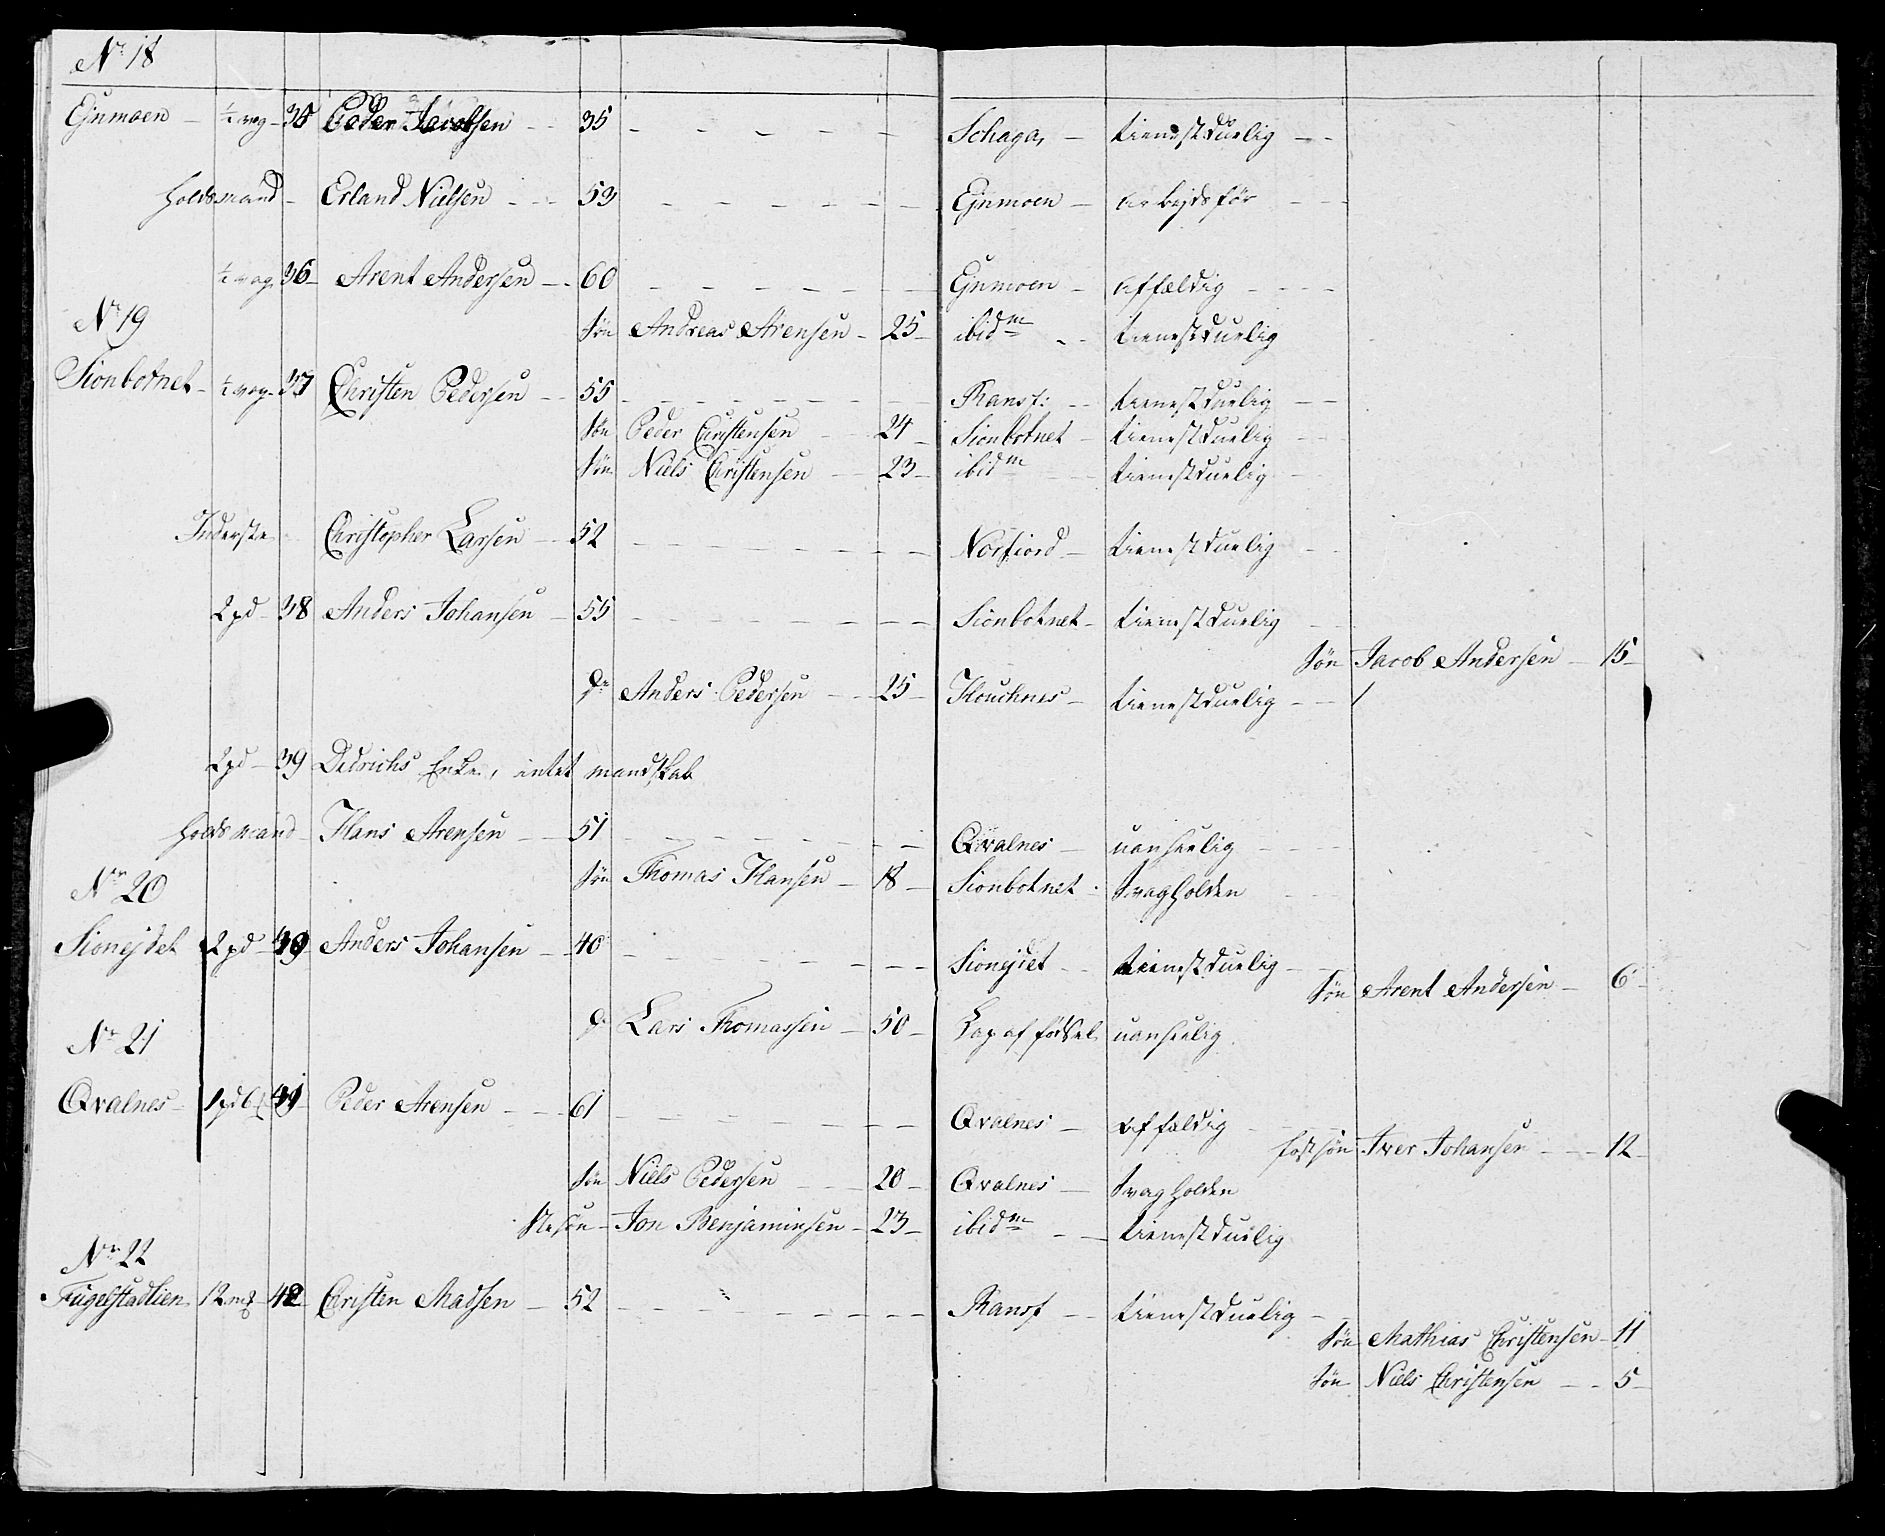 No 18
Ejnmoen - ½ vog - 35 Peder Jacobsen - - 35 - - - - - Schaga, - tienestduelig - -
Holdsmand - Erland Nielsen - - - 53 - - - - - - Ejnmoen - arbejdsfør - - -
½ vog 36 - Arent Andersen - - 60 - - - - - - Ejnmoen - affældig - - - -
No 19
Søn Andreas Arensen - 25 - ibidm - - tienestduelig
Sionbotnet - ½ vog - 37 Christen Pedersen - - 55 - - - - - - Ransf: - - tienestduelig - -
Søn Peder Christensen - - 24 - Sionbotnet - tienestduelig - -
Søn Niels Christensen - - 23 - ibidm - - tienestduelig -
Inderste Christopher Larsen - 52 - - - - - - Norfiord - tienestduelig - -
2 pd - 38 Anders Johansen - 55 - - - - - - - Sionbotnet - tienestduelig - -
Søn Jacob Andersen - 15 -
Do Anders Pedersen - - 25 - Houchnes - tienestduelig - - /
2 pd - 39 Didrichs Enke, intet mandskab
Holdsmand - Hans Arensen - - 51 - - - - - - Qvalnes - uanseelig - - - -
No 20
Søn Thomas Hansen - 18 - Sionbotnet - Svagholden - -
Sionejdet 2 pd - 40 Anders Johansen - - 40 - - - - - - Sionejdet - - tienestduelig - -
Søn Arent Andersen - 6 -
Do Lars Thomassen - 50 - Lap af fødsel uanseelig
No 21
Qvalnes - 41 Peder Arensen - - - 61 - - - - - - Qvalnes - affældig -
fostsøn Iver Johansen - - - 12 -
Søn Niels Pedersen - - - 20 - Qvalnes - Svagholden
Stesøn - Jon Benjaminsen - 23 - ibidm - - tienestduelig
No 22
Fugelstadlien 12 mk - 42 Christen Madsen - 52 - - - - - - - Ransf - - tienestduelig - -
Søn Mathias Christensen - 11
Søn Niels Christensen - - 5 -